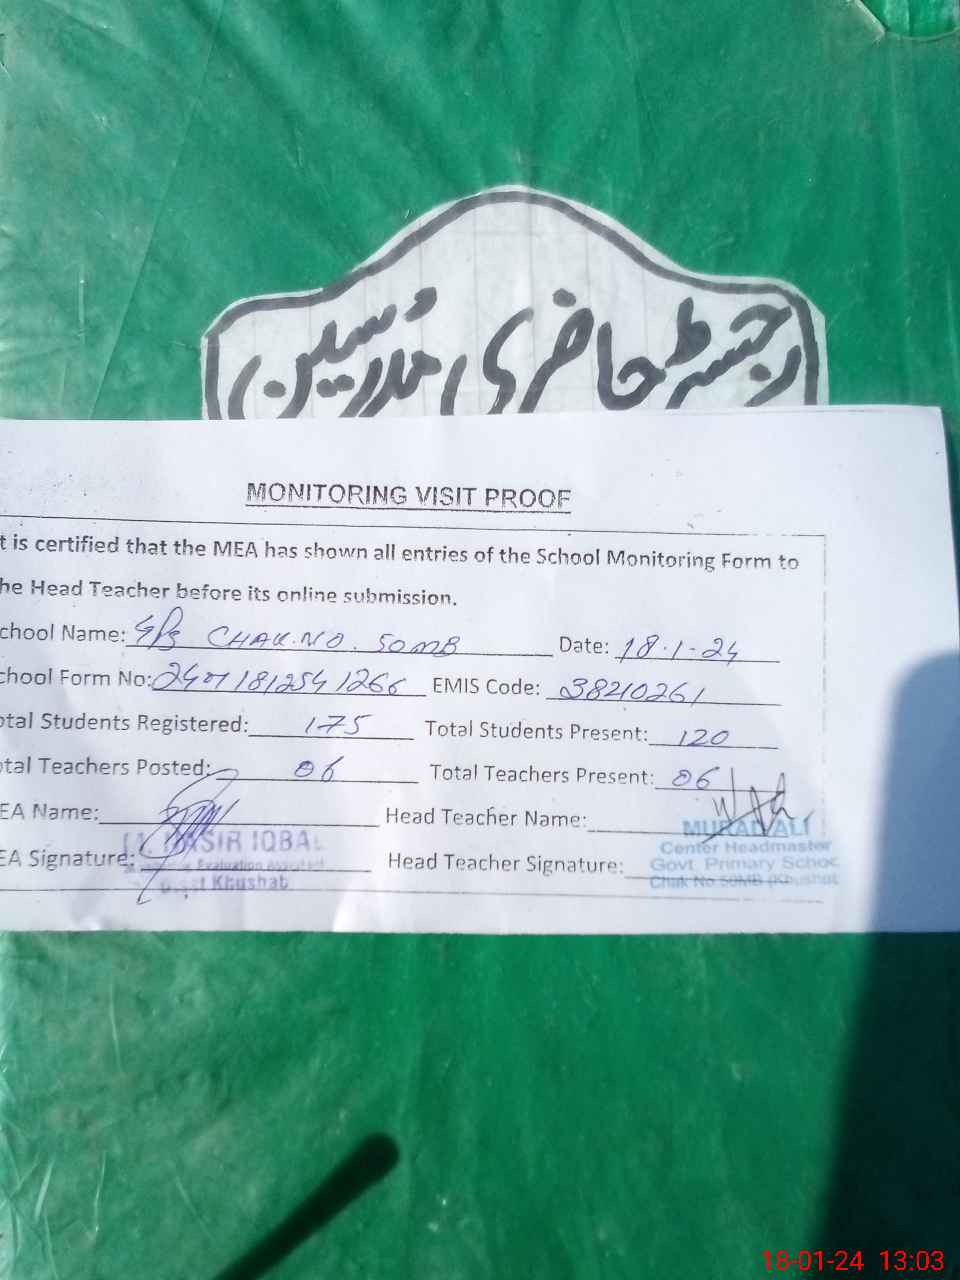 رجسٹر حاضری مدرسین
MONITORING VISIT PROOF
t is certified that the MEA has shown all entries of the School Monitoring Form to
he Head Teacher before its online submission.
chool Name: GPS CHAK.NO. 50MB Date: 18.1-24
chool Form No: EMIS Code: 38210261
otal Students Registered: 175 Total Students Present: 120
otal Teachers Posted: 06 Total Teachers Present: 06
EA Name: Head Teacher Name:
MURAD ALI
Center Headmaster
Govt. Primary Schoo
Chak No.50MB (Khushab
EA Signature: Head Teacher Signature:
NASIR IQBAL
Evaluation Assistant
Khushab
18-01-24 13:03